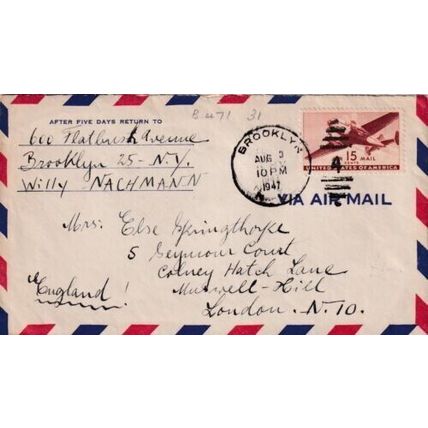 B 471 31
AFTER FIVE DAYS RETURN TO
600 Flatbush Avenue
Brooklyn 25 - N.Y.
Willy NACHMANN
BROOKLYN
AUG 3
10 PM
1947
15 MAIL
CENTS
UNITED STATES OF AMERICA
VIA AIR MAIL
Mrs. Else Springthorpe
5 Seymour Court
Colney Hatch Lane
Muswell-Hill
London. N. 10.
England!